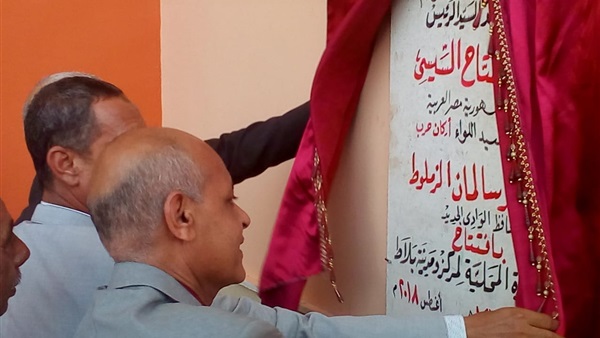 السيد الرئيس
ـتاح السيسى
ـهورية مصر العربية
ـسيد اللواء أركان حرب
ـد سلمان الزملوط
ـافظ الوادى الجديد
بافتتاح
ـة المحلية لمركز ومدينة بلاط
أغسطس ٢٠١٨ م